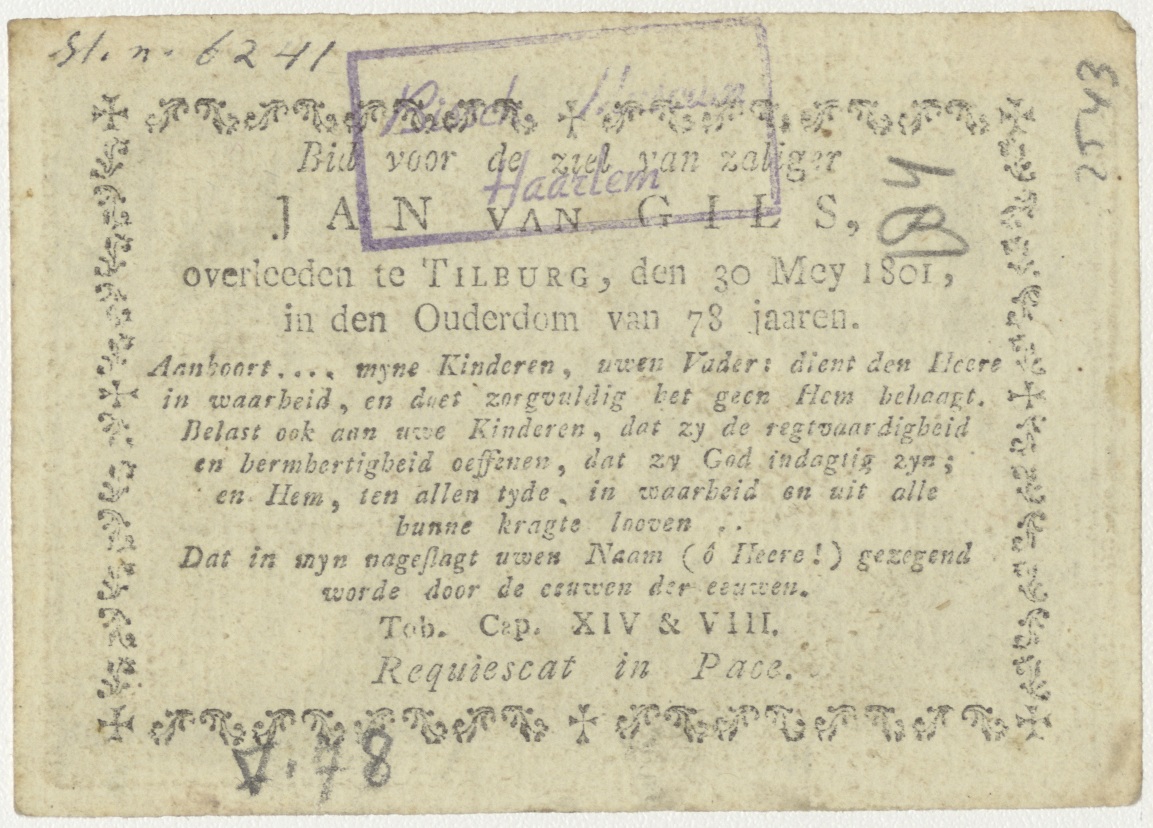 St. n. 6241
Bissch. Museum
Haarlem
2543
Bid voor de ziel van zaliger
JAN VAN GILS,
overleeden te TILBURG, den 30 Mey 1801,
in den Ouderdom van 78 jaaren.
Aanhoort.... myne Kinderen, uwen Vader: dient den Heere
in waarheid, en doet zorgvuldig het geen Hem behaagt.
Belast ook aan uwe Kinderen, dat zy de regtvaardigheid
en bermhertigheid oeffenen, dat zy God indagtig zyn;
en Hem, ten allen tyde, in waarheid en uit alle
hunne kragte looven ..
Dat in myn nageslagt uwen Naam (ô Heere!) gezegend
worde door de eeuwen der eeuwen.
Tob. Cap. XIV & VIII.
Requiescat in Pace.